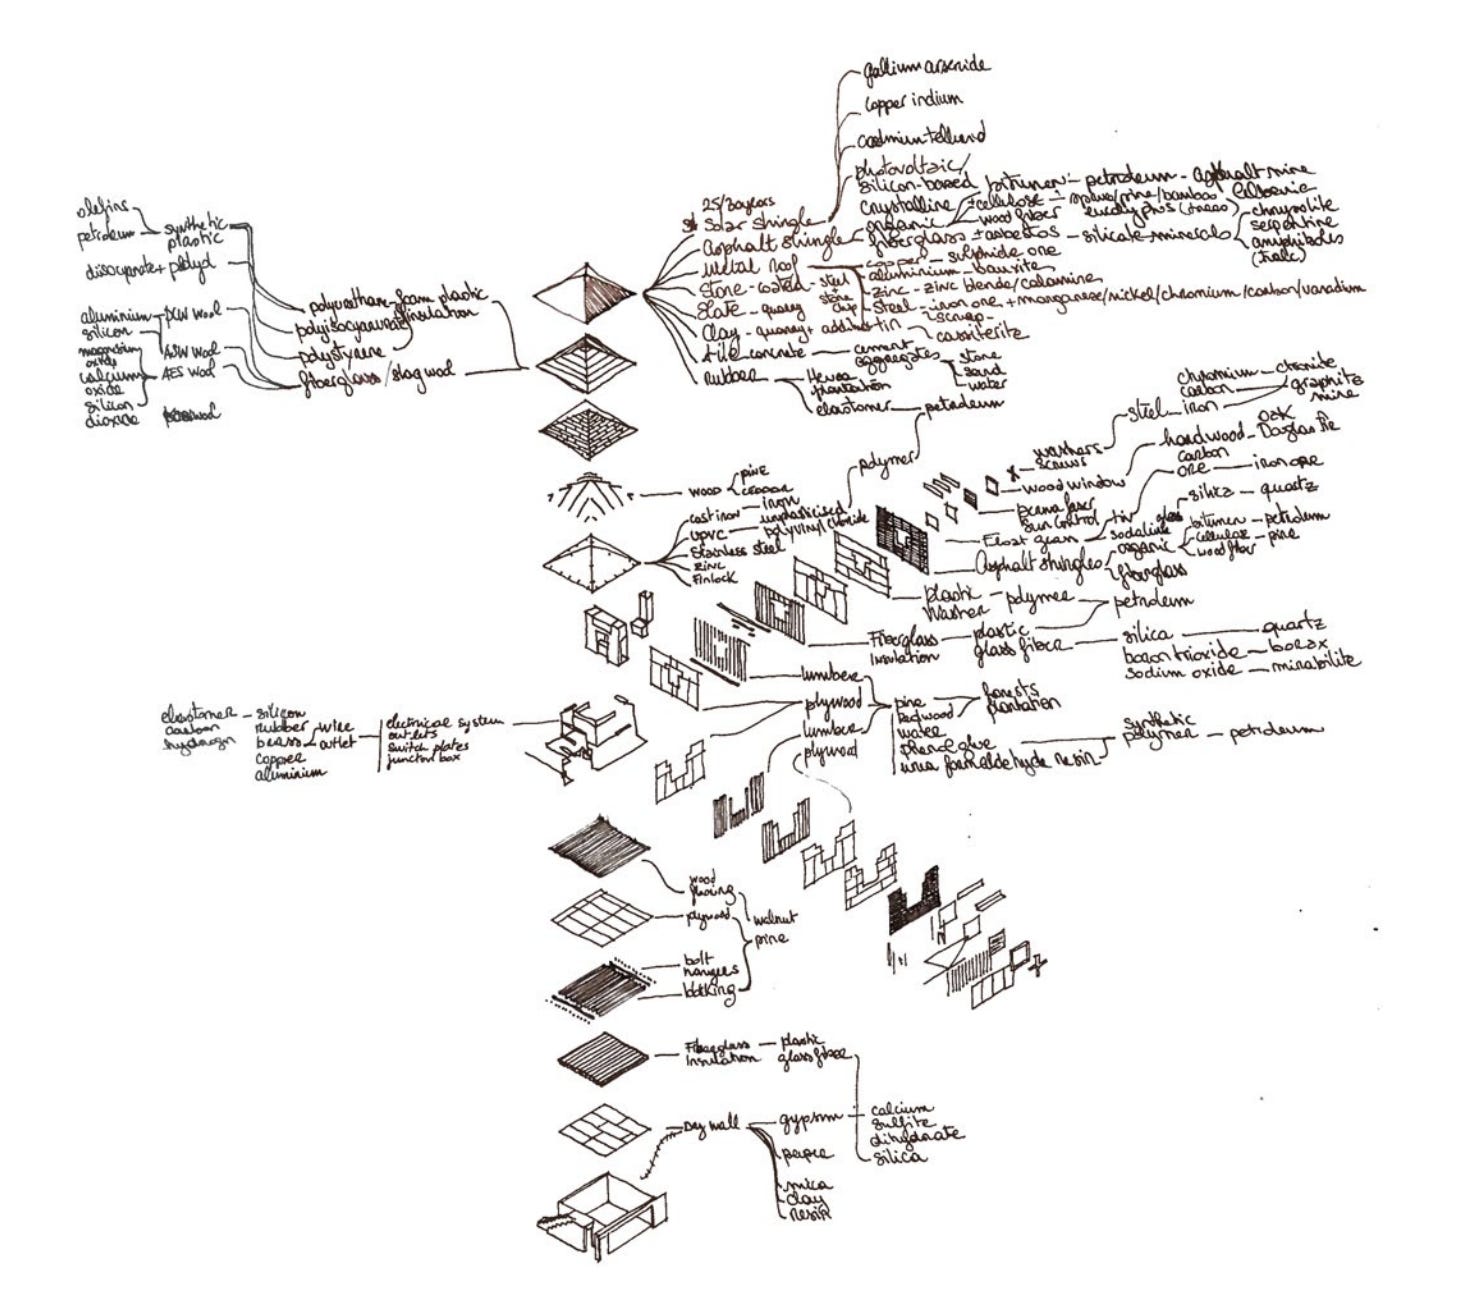 gallium arsenide
copper indium
cadmium-tellurid
photovoltaic/
silicon-based
crystalline
25/30 years
Solar shingle
asphalt shingle
organic
fiberglass
bitumen - petroleum - asphalt mine
+cellulose
wood fiber
spruce/pine/bamboo
eucalyptus (trees)
+asbestos - silicate minerals
chrysolite
serpentine
amphiboles
(talc)
metal roof
copper - sulphide ore
aluminium - bauxite
zinc - zinc blende/calamine
steel - iron ore + manganese/nickel/chromium/carbon/vanadium
scrap
tin
cassiterite
Stone-coated - steel
+
stone
chip
Slate - quarry
Clay - quarry + additives
tile concrete - cement
aggregates
stone
sand
water
rubber
Hevea
plantation
elastomer - petroleum
olefins
petroleum
synthetic
plastic
diisocyanate + polyol
polyurethane
polyisocyanurate
polystyrene
foam plastic
insulation
fiberglass/slag wool
aluminium
silicon
magnesium
oxide
calcium
oxide
silicon
dioxide
PCW wool
ASW wool
AES wool
wood
pine
cast iron - iron
UPVC - unplasticised
polyvinyl chloride
polymer
stainless steel
zinc
Finlock
washers
screws
steel
chromium - chromite
carbon
iron
graphite
mine
wood window
hardwood
oak
Douglas fir
sun control
carbon
ore - iron ore
tin
sodalime
glass
silica - quartz
Asphalt shingles
organic
fiberglass
bitumen - petroleum
cellulose
wood fiber
pine
plastic
washer
polymer
petroleum
Fiberglass
Insulation
plastic
glass fiber
silica - quartz
boron trioxide - borax
sodium oxide - mirabilite
lumber
plywood
lumber
plywood
pine
redwood
water
phenol glue
urea formaldehyde resin
forests
plantation
synthetic
polymer - petroleum
elastomer - silicon
carbon
hydrogen
rubber
brass
copper
aluminium
wire
outlet
electrical system
outlets
switch plates
junction box
wood
flooring
plywood
walnut
pine
bolt
hangers
blocking
Fiberglass
Insulation
plastic
glass fiber
Dry wall
gypsum
paper
mica
clay
resin
calcium
sulfite
dihydrate
silica